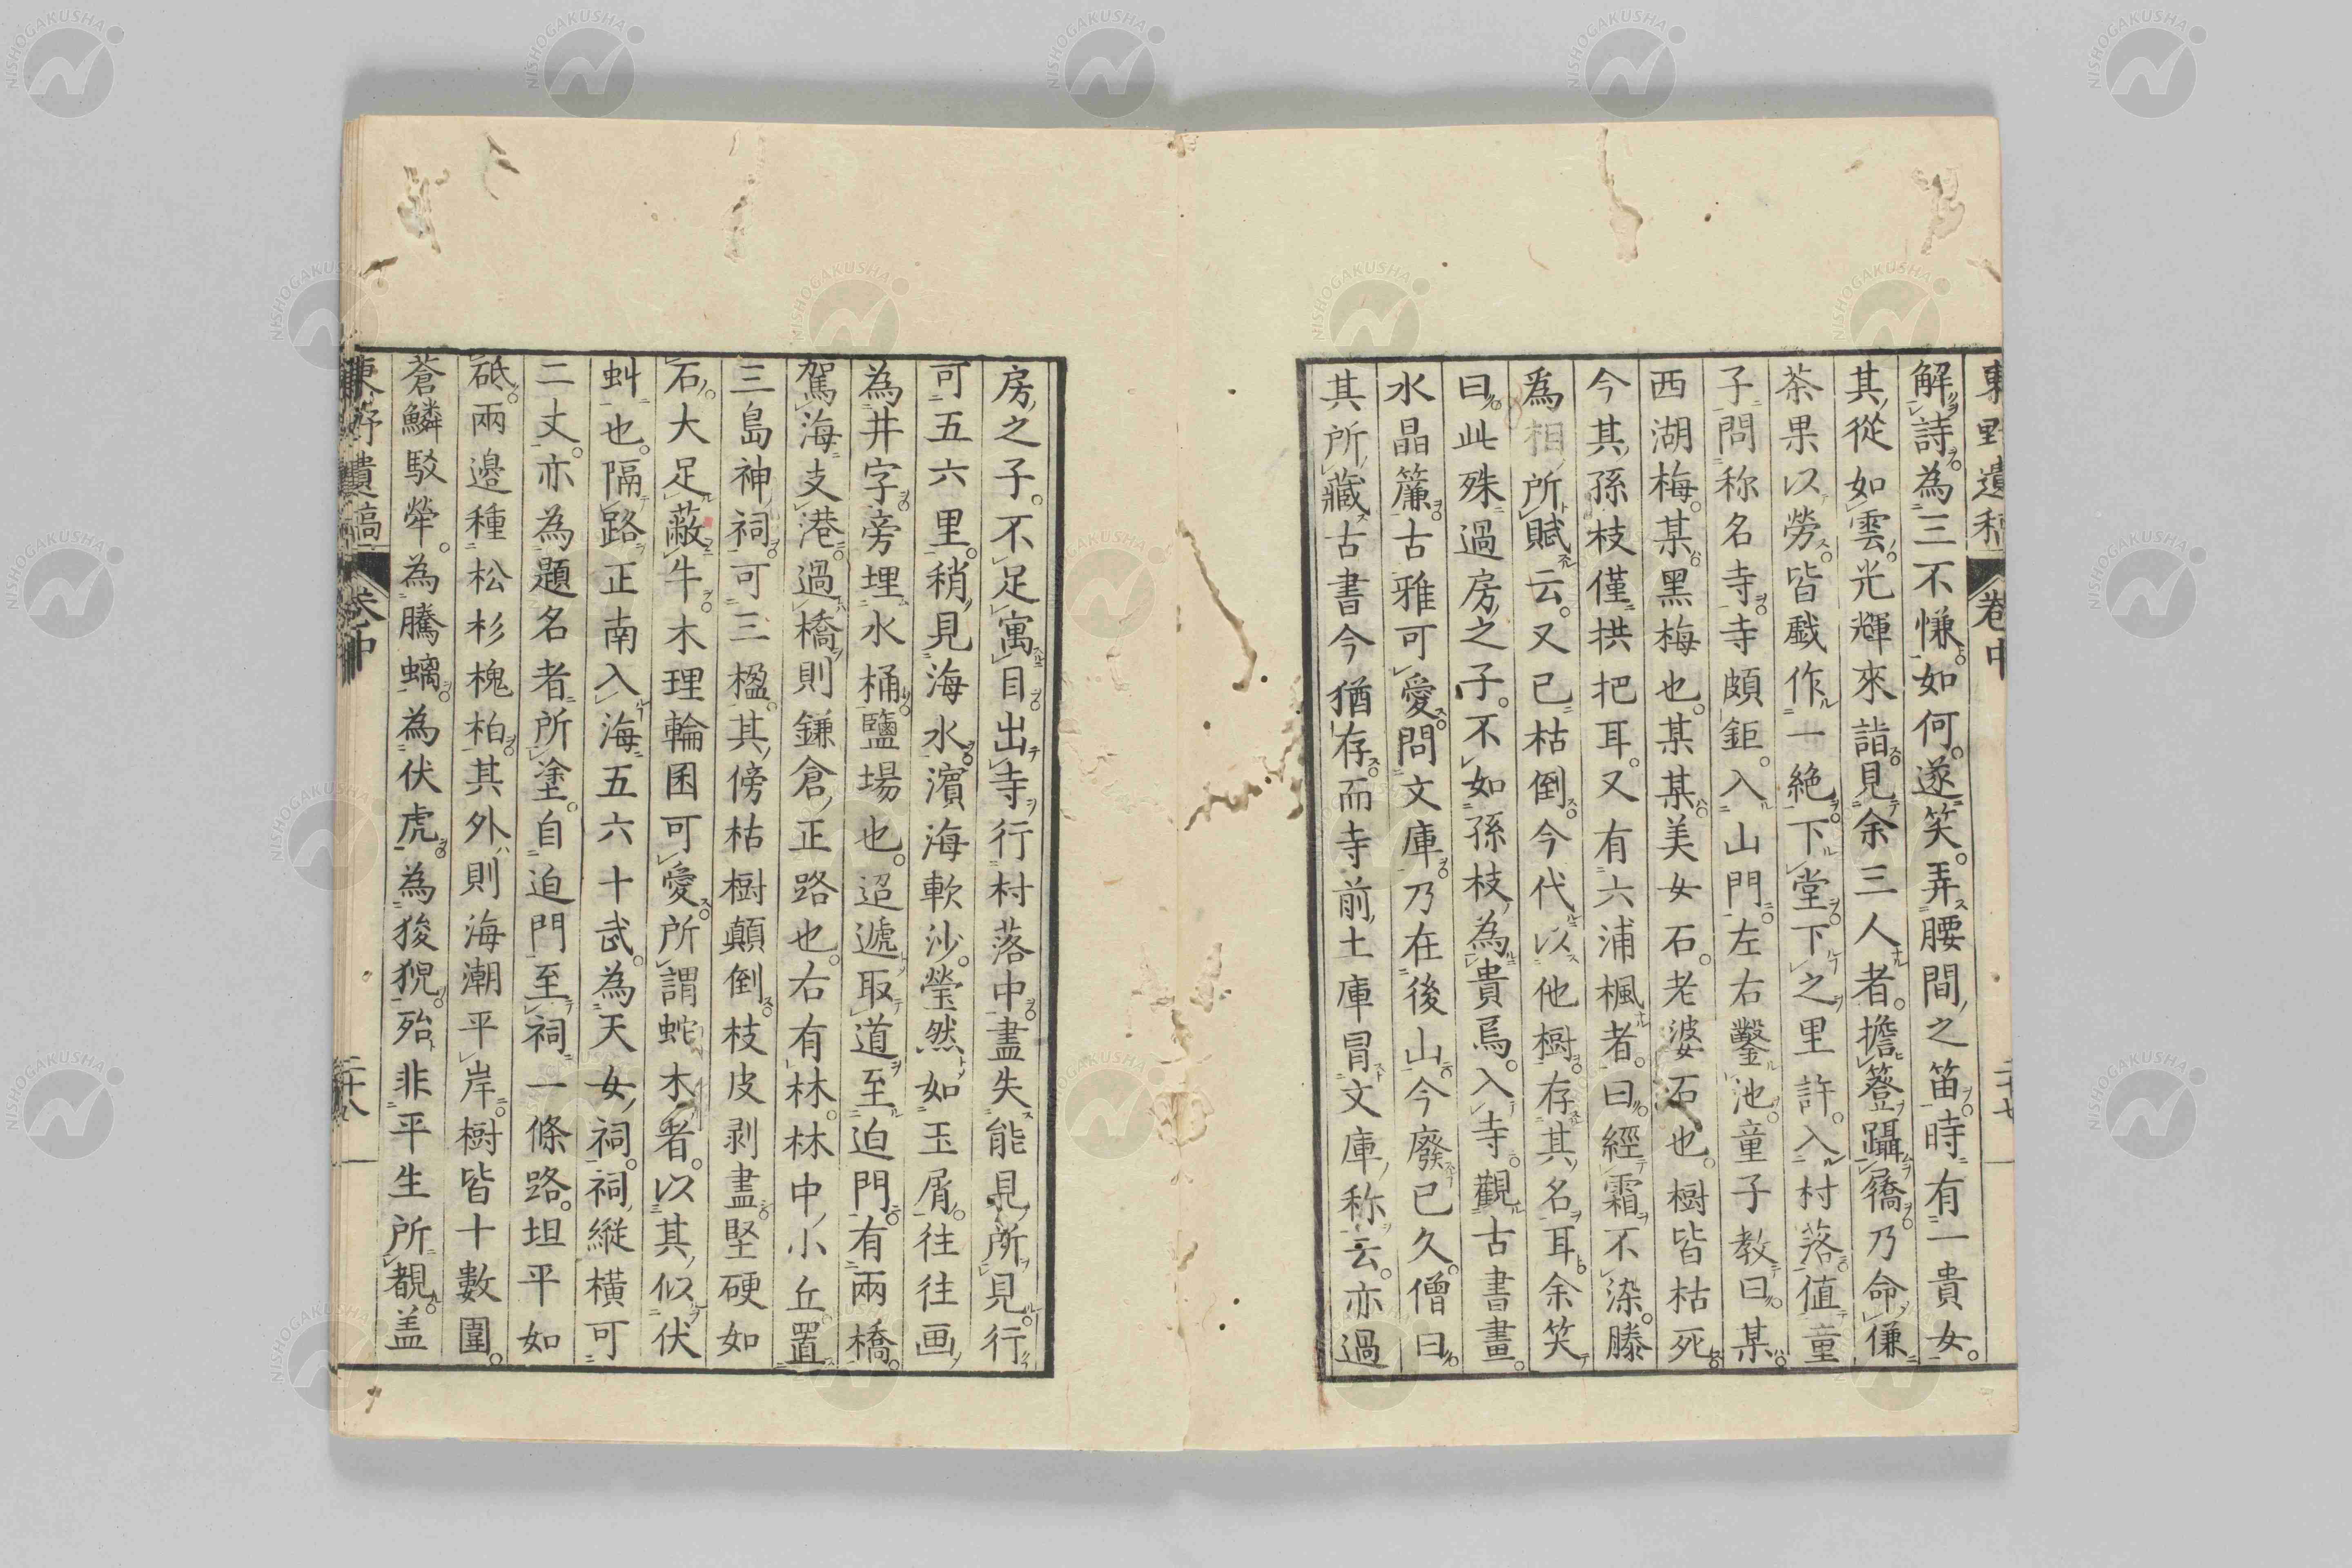 東野遺稿 卷中 二十七
解詩為三不慊如何遂笑弄腰間之笛時有一貴女
其從如雲光輝來詣見余三人者擔簦躡屩乃命傔
茶果以勞皆戲作一絶下堂下之里許入村落值童
子問称名寺寺頗鉅入山門左右鑿池童子教曰某
西湖梅某黑梅也某某美女石老婆石也樹皆枯死
今其孫枝僅拱把耳又有六浦楓者曰經霜不染滕
為相所賦云又已枯倒今代以他樹存其名耳余笑
曰此殊過房之子不如孫枝為貴焉入寺觀古書畫
水晶簾古雅可愛問文庫乃在後山今廢已久僧曰
其所藏古書今猶存而寺前土庫冒文庫称云亦過
房之子不足寓目出寺行村落中盡失能見所見行
可五六里稍見海水濱海軟沙瑩然如玉屑往往画
為井字旁埋水桶鹽場也迢遞取道至迫門有兩橋
駕海支港過橋則鎌倉正路也右有林林中小丘置
三島神祠可三楹其傍枯樹顛倒枝皮剥盡堅硬如
石大足蔽牛木理輪囷可愛所謂蛇木者以其似伏
虯也隔路正南入海五六十武為天女祠祠縱橫可
二丈亦為題名者所塗自迫門至祠一條路坦平如
砥兩邊種松杉槐柏其外則海潮平岸樹皆十數圍
蒼鱗駁犖為騰螭為伏虎為狻猊殆非平生所覩盖
東野遺稿 卷中 二十八